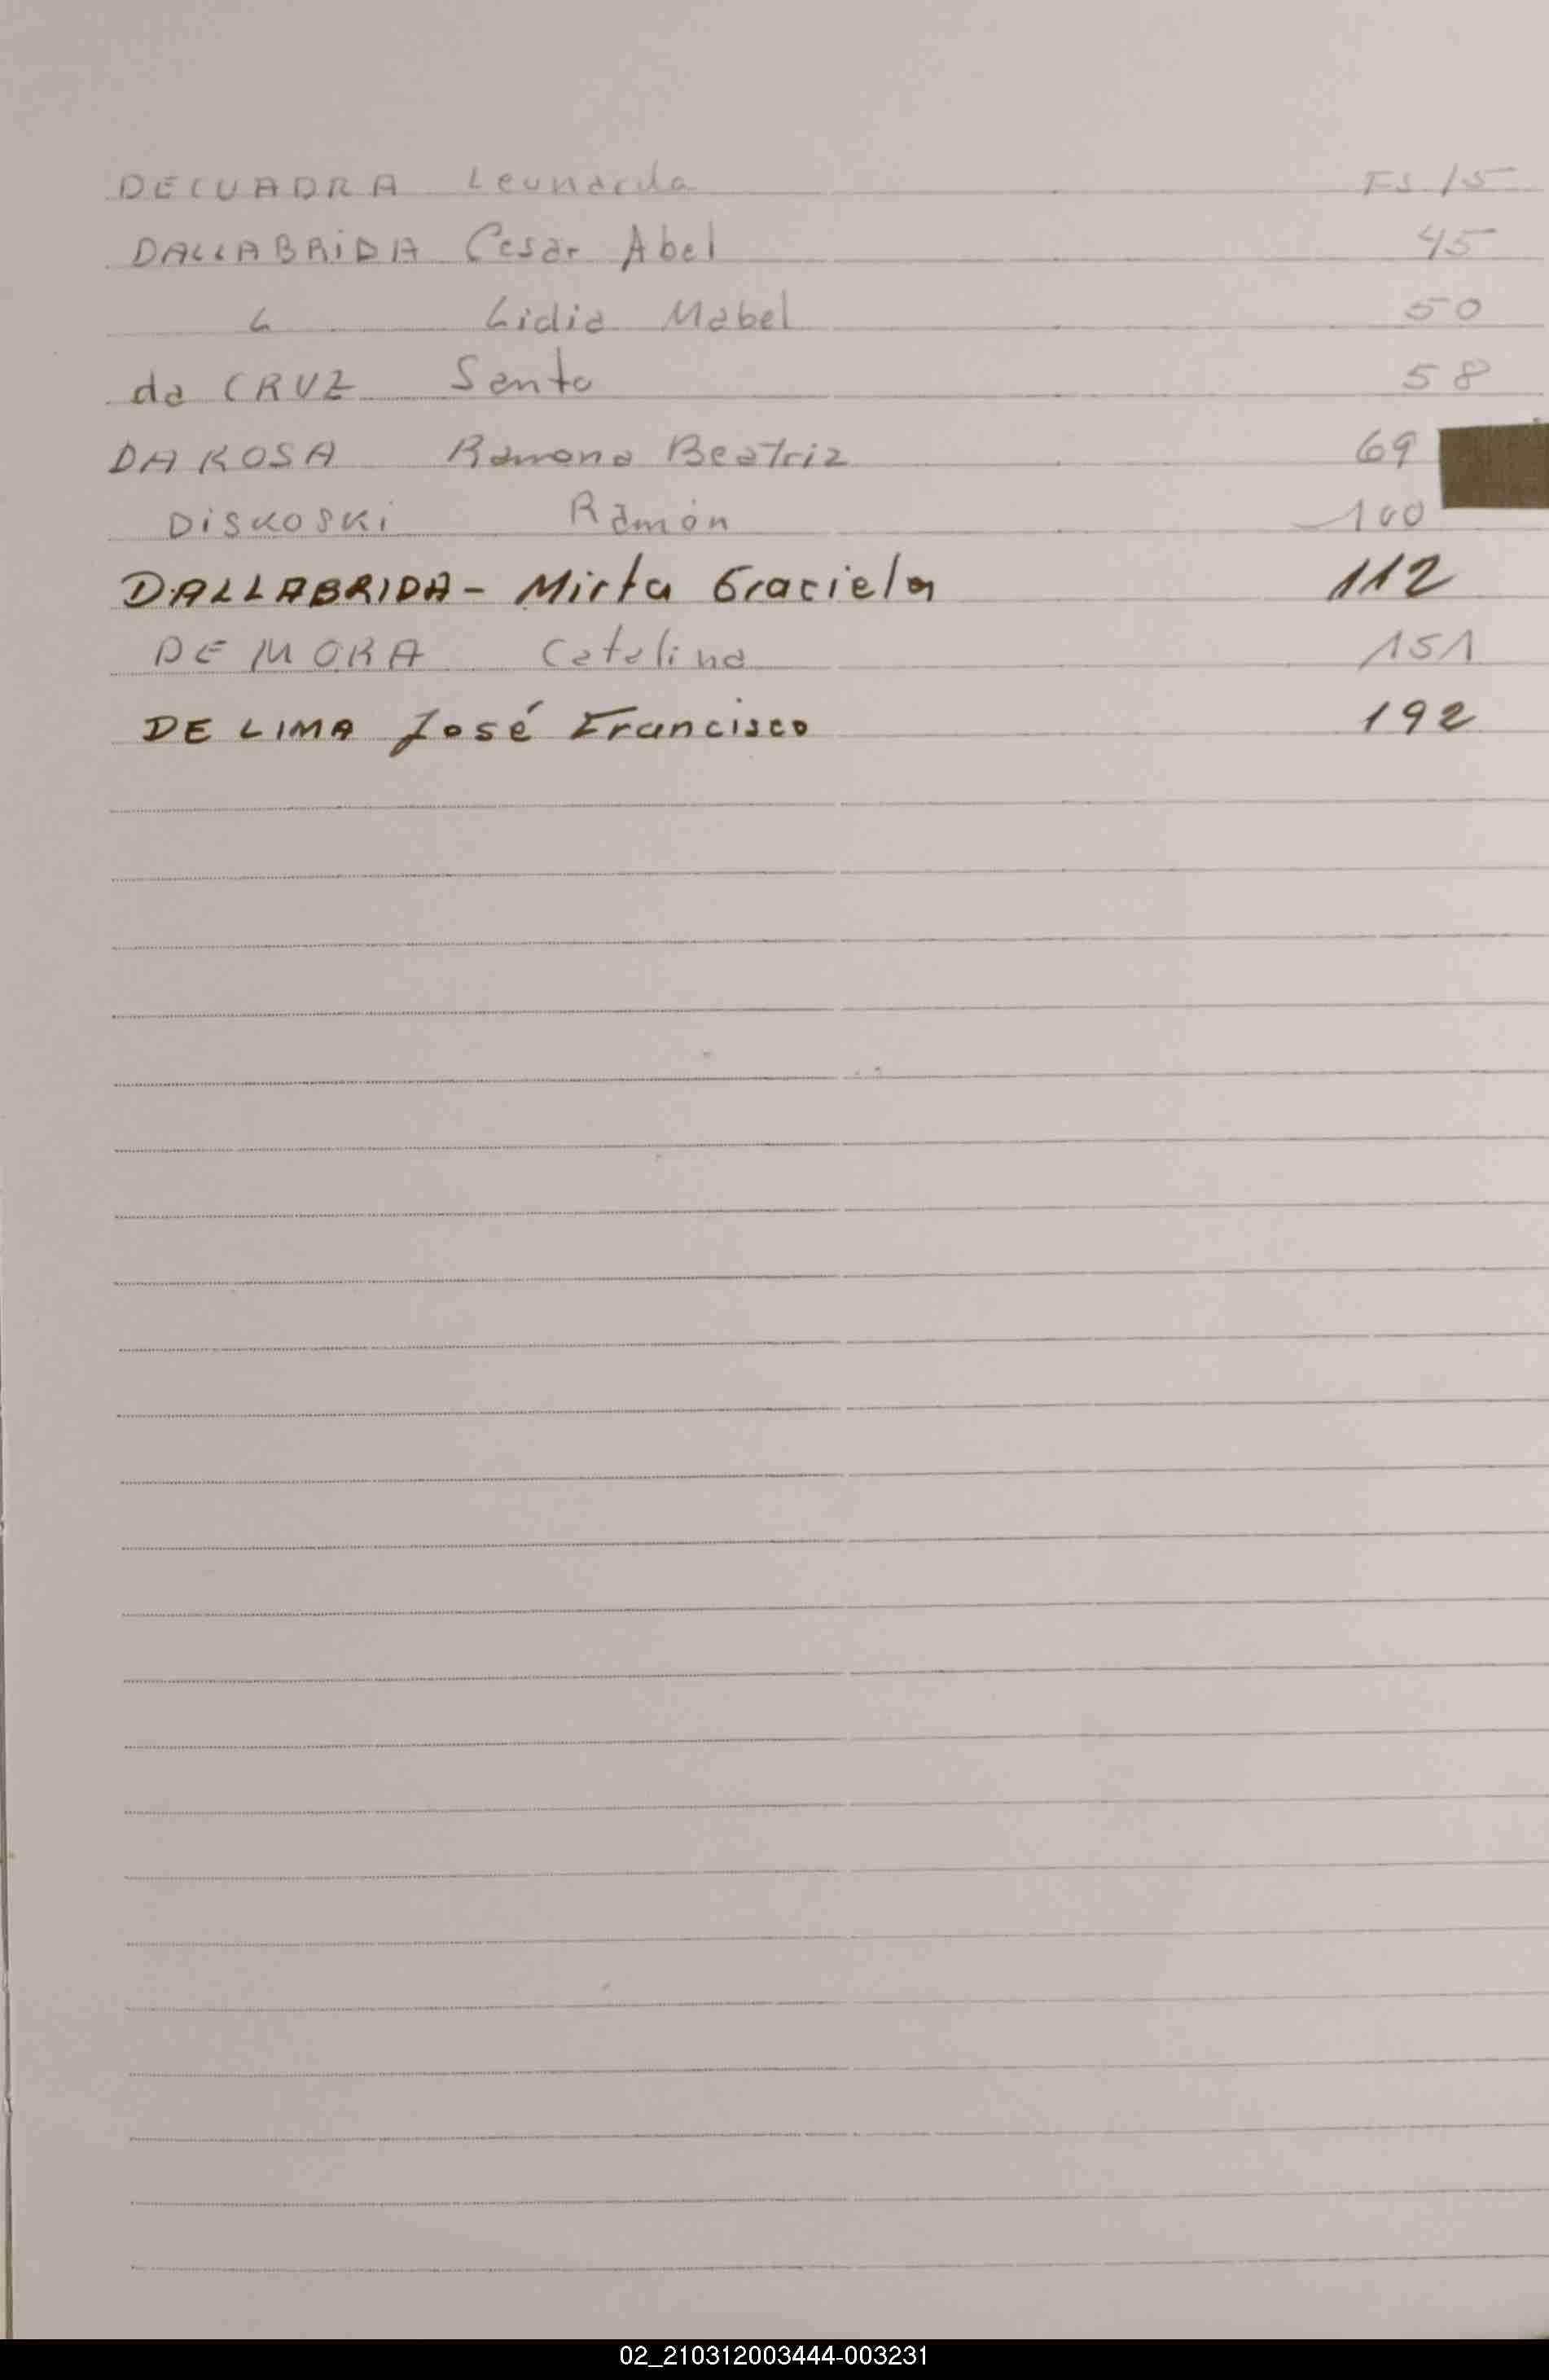 DECUADRA Leonarda Fs 15
DALLABRIDA Cesar Abel 45
" Lidia Mabel 50
da CRUZ Santo 58
DA ROSA Ramona Beatriz 69
DISKOSKI Ramón 100
DALLABRIDA - Mirta Graciela 112
DE MORA Catalina 151
DE LIMA José Francisco 192
02_210312003444-003231